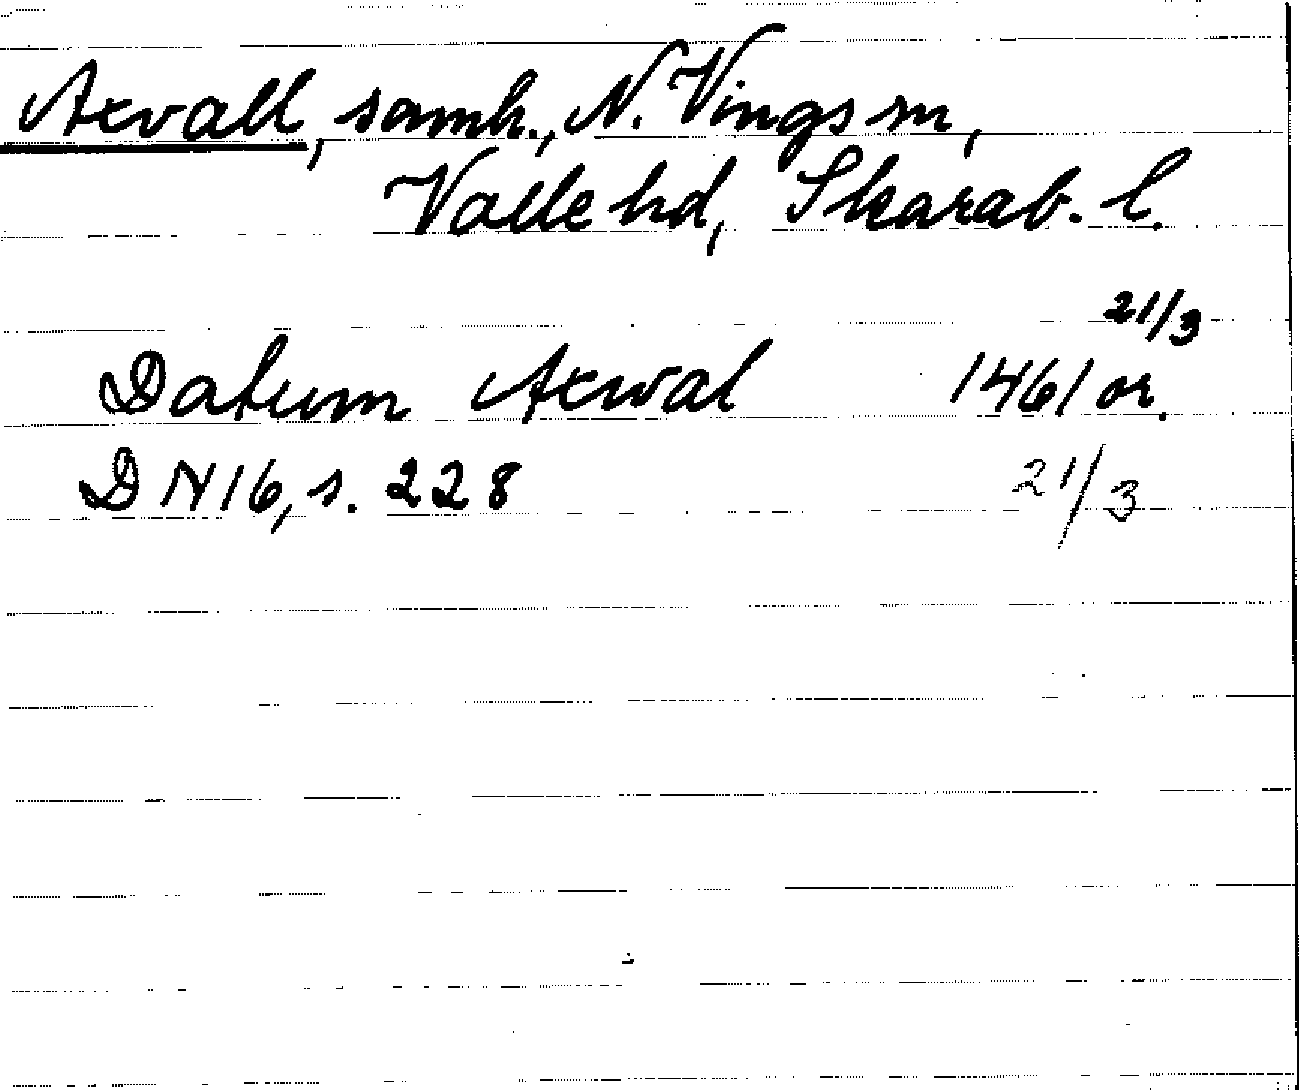 Axvall, samh., N. Vings sn,
Valle hd, Skarab. l.
21/3
Datum Axwal 1461 or.
DN 16, s. 228 21/3